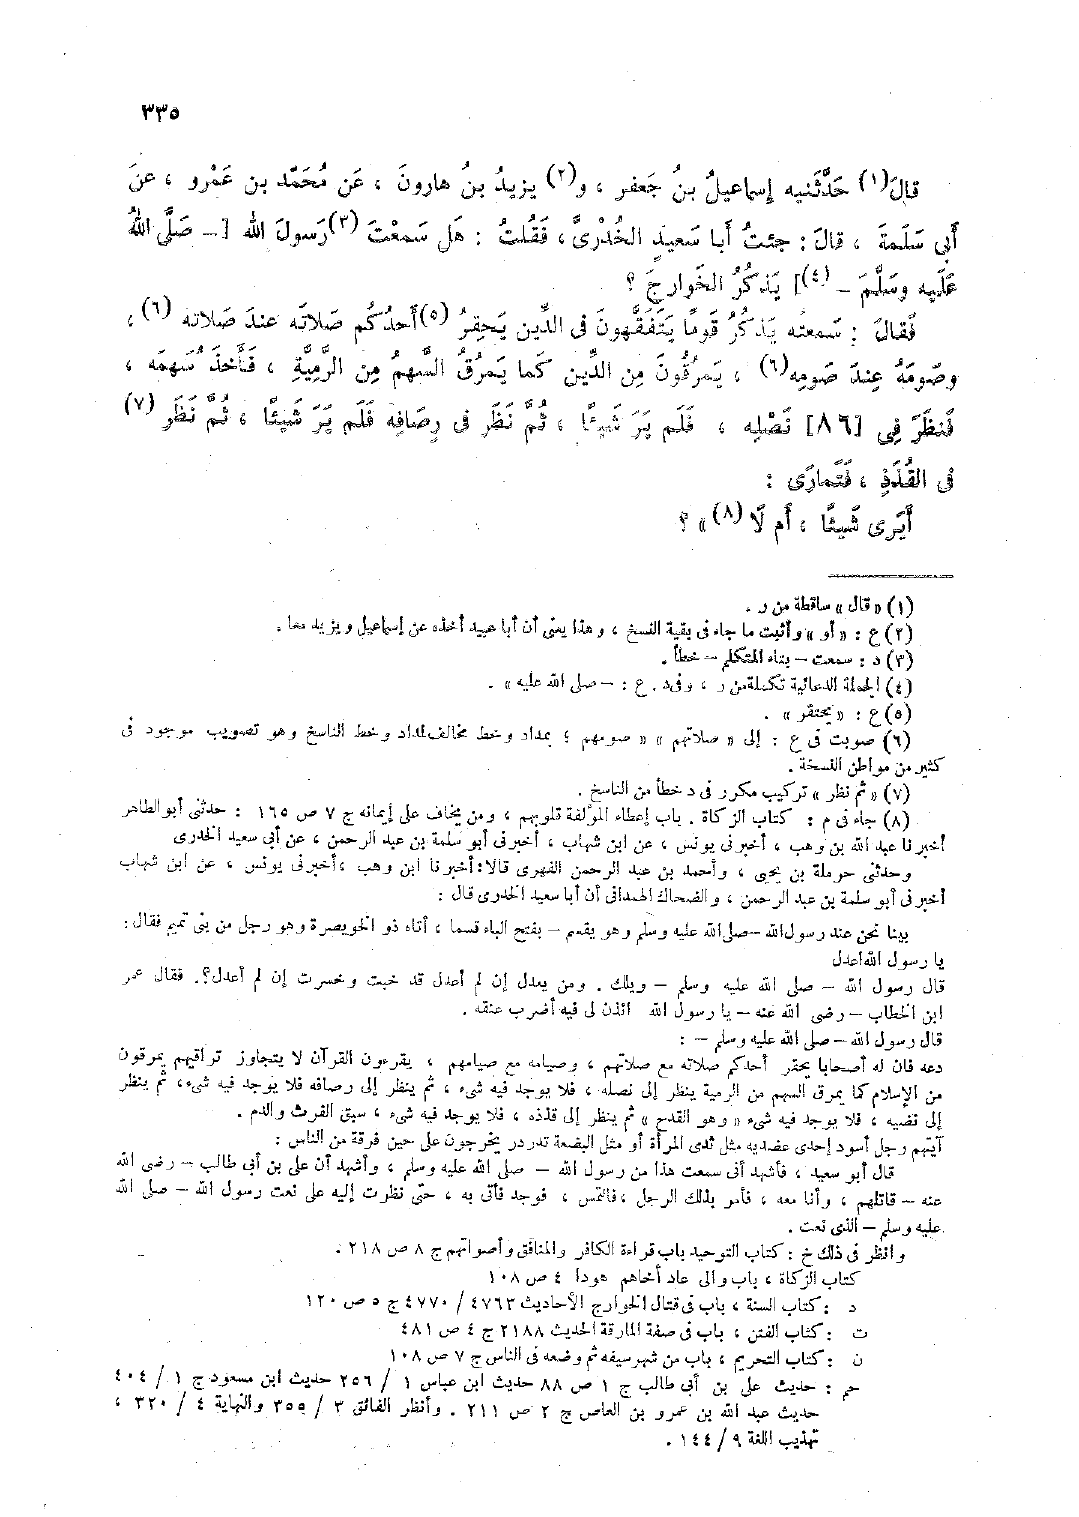 ٣٣٥
قالَ(١) حَدَّثَنيه إسماعيلُ بنُ جَعفر ، و(٢) يزيدُ بنُ هارونَ ، عَن مُحَمّد بن عَمْرو ، عنَ
أبى سَلَمةَ ، قالَ : جئتُ أبا سَعيدٍ الخُدْرىَّ ، فَقُلتُ : هَل سَمعْتَ (٣)رَسولَ الله [– صَلَّى اللهُ
عَلَيه وسَلَّمَ – (٤)] يَذكُرُ الخَوارجَ ؟
فَقالَ : سَمعتُه يَذكُرُ قَومًا يَتَفَقَّهونَ فى الدِّين يَحقِرُ (٥)أَحدُكُم صَلاتَه عندَ صَلاته (٦) ،
وصَومَهُ عِندَ صَومِه(٦) ، يَمرُقُونَ مِن الدِّين كَما يَمرُقُ السَّهمُ مِن الرَّميَّةِ ، فَأَخذَ سَهمَه ،
فَنظَرَ فِى [٨٦] نَصْلِه ، فَلَم يَرَ شَيئًا ، ثُمَّ نَظَر فى رِصَافِه فَلَم يَرَ شَيئًا ، ثُم نَظَر (٧)
فى القُذَذِ ، فَتَمارَى :
أَيَرى شَيئًا ، أم لَا (٨)» ؟
(١) «قال» ساقطة من ر .
(٢) ع : «أو» وأثبت ما جاء فى بقية النسخ ، وهذا يعنى أن أبا عبيد أخذه عن إسماعيل ويزيد معا .
(٣) د : سمعت – بتاء المتكلم – خطأ .
(٤) الجملة الدعائية تكملة من ر ، وفى د . ع : – صلى الله عليه» .
(٥) ع : «يحتقر» .
(٦) صوبت فى ع : إلى «صلاتهم» «صومهم ؛ بمداد وخط مخالف لمداد وخط الناسخ وهو تصويب موجود فى
كثير من مواطن النسخة .
(٧) «ثم نظر» تركيب مكرر فى د خطأ من الناسخ .
(٨) جاء فى م : كتاب الزكاة . باب إعطاء المؤلفة قلوبهم ، ومن يخاف على إيمانه ج ٧ ص ١٦٥ : حدثنى أبو الطاهر
أخبرنا عبد الله بن وهب ، أخبرنى يونس ، عن ابن شهاب ، أخبرنى أبو سلمة بن عبد الرحمن ، عن أبى سعيد الخدرى
وحدثنى حرملة بن يحيى ، وأحمد بن عبد الرحمن الفهرى قالا : أخبرنا ابن وهب ، أخبرنى يونس ، عن ابن شهاب
أخبرنى أبو سلمة بن عبد الرحمن ، والضحاك الهمدانى أن أبا سعيد الخدرى قال :
بينا نحن عند رسول الله –صلى الله عليه وسلم وهو يقسم – بفتح الياء قسما ، أتاه ذو الخويصرة وهو رجل من بنى تميم فقال :
يا رسول الله اعدل
قال رسول الله – صلى الله عليه وسلم – ويلك . ومن يعدل إن لم أعدل قد خبت وخسرت إن لم أعدل؟. فقال عمر
ابن الخطاب – رضى الله عنه – يا رسول الله ائذن لى فيه أضرب عنقه .
قال رسول الله – صلى الله عليه وسلم – :
دعه فان له أصحابا يحقر أحدكم صلاته مع صلاتهم ، وصيامه مع صيامهم ، يقرءون القرآن لا يتجاوز تراقيهم يمرقون
من الإسلام كما يمرق السهم من الرمية ينظر إلى نصله ، فلا يوجد فيه شىء ، ثم ينظر إلى رصافه فلا يوجد فيه شىء ، ثم ينظر
إلى نضيه ، فلا يوجد فيه شىء «وهو القدح» ثم ينظر إلى قذذه ، فلا يوجد فيه شىء ، سبق الفرث والدم .
آيتهم رجل أسود إحدى عضديه مثل ثدى المرأة أو مثل البضعة تدردر يخرجون على حين فرقة من الناس :
قال أبو سعيد ، فأشهد أنى سمعت هذا من رسول الله – صلى الله عليه وسلم ، وأشهد أن على بن أبى طالب – رضى الله
عنه – قاتلهم ، وأنا معه ، فأمر بذلك الرجل ، فالتمس ، فوجد فأتى به ، حتى نظرت إليه على نعت رسول الله – صلى الله
عليه وسلم – الذى نعت .
وانظر فى ذلك خ : كتاب التوحيد باب قراءة الكافر والمنافق وأصواتهم ج ٨ ص ٢١٨ .
كتاب الزكاة ، باب والى عاد أخاهم هودا ٤ ص ١٠٨
د : كتاب السنة ، باب فى قتال الخوارج الأحاديث ٤٧٦٣ / ٤٧٧٠ ج ٥ ص ١٢٠
ت : كتاب الفتن ، باب فى صفة المارقة الحديث ٢١٨٨ ج ٤ ص ٤٨١
ن : كتاب التحريم ، باب من شهر سيفه ثم وضعه فى الناس ج ٧ ص ١٠٨
حم : حديث على بن أبى طالب ج ١ ص ٨٨ حديث ابن عباس ١ / ٢٥٦ حديث ابن مسعود ج ١ / ٤٠٤
حديث عبد الله بن عمرو بن العاص ج ٢ ص ٢١١ . وأنظر الفائق ٣ / ٣٥٥ والنهاية ٤ / ٣٢٠ ،
تهذيب اللغة ٩ / ١٤٤ .